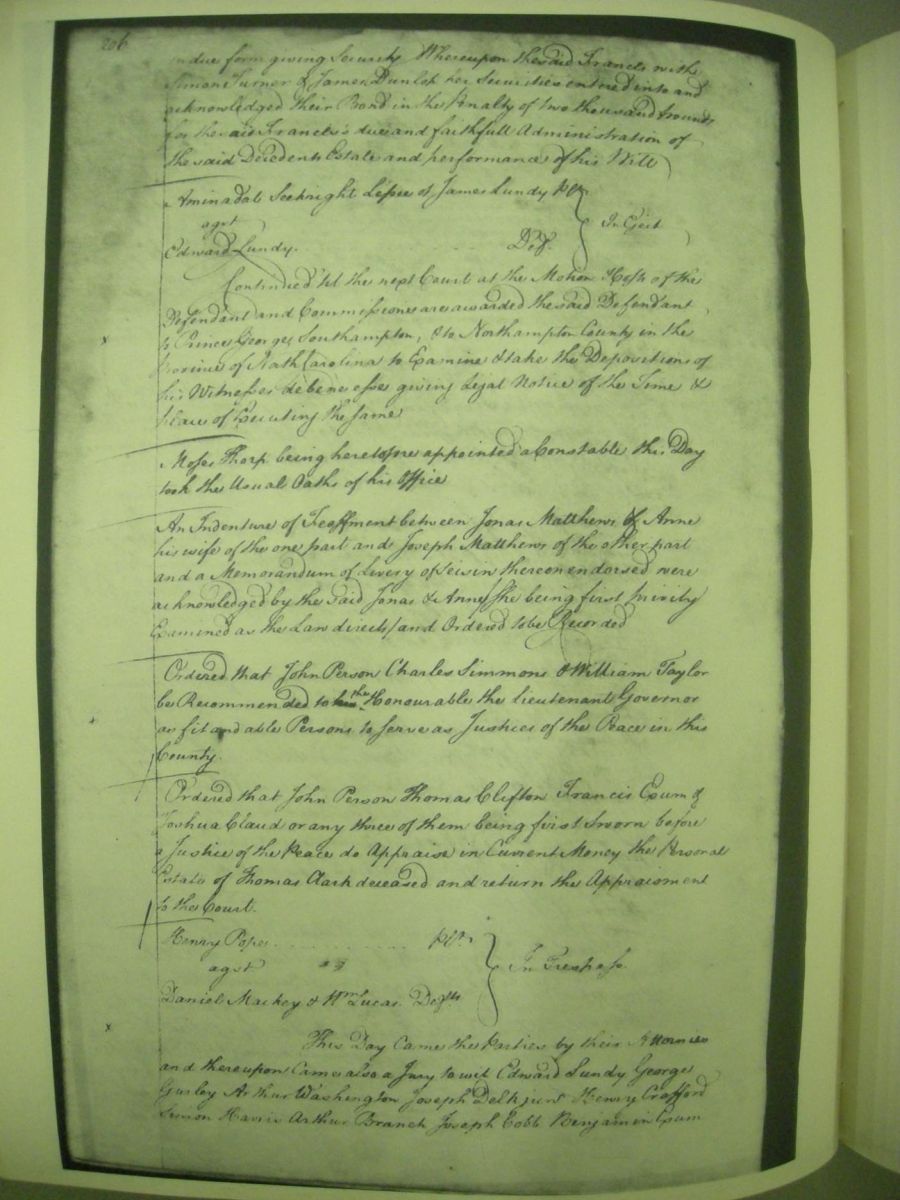 206
in due form giving Security Whereupon the said Francis with
Simon Turner & James Dunlop his Securities entred into and
acknowledged their Bond in the Penalty of two thousand pounds
for the said Francis's due and faithfull Administration of
the said Decedents Estate and performance of his Will
Aminadab Seekright Lessee of James Lundy Plt
agst
In Eject
Edward Lundy. Deft.
Continued 'til the next Court at the Motion & Costs of the
Defendant and Commissions are awarded the said Defendant
to Prince George, Southampton, & to Northampton County in the
Province of North Carolina to Examine & take the Depositions of
his Witnesses debene esse giving Legal Notice of the Time &
place of Executing the same
Moses Thorp being heretofore appointed a Constable this Day
took the Usual Oaths of his Office
An Indenture of Feoffment between Jonas Matthews & Anne
his wife of the one part and Joseph Matthews of the other part
and a Memorandum of Livery of Seisin thereon endorsed were
acknowledged by the said Jonas & Anne (She being first privily
Examined as the Law directs) and Ordered to be Recorded
Ordered that John Person Charles Simmons & William Taylor
be Recommended to the Honourable the Lieutenant Governor
as fit and able Persons to serve as Justices of the Peace in this
County.
Ordered that John Person Thomas Clifton Francis Exum &
Joshua Claud or any three of them being first Sworn before
a Justice of the Peace do Appraise in Current Money the Personal
Estate of Thomas Clark deceased and return the Appraisment
to the Court.
Henry Pope Plt
agst
In Trespass
Daniel Mackey & Wm Lucas. Defts
This Day Came the Parties by their Attornies
and thereupon Came also a Jury to wit Edward Lundy George
Gurley Arthur Washington Joseph Delk junr Henry Crafford
Simon Harris Arthur Branch Joseph Cobb Benjamin Exum